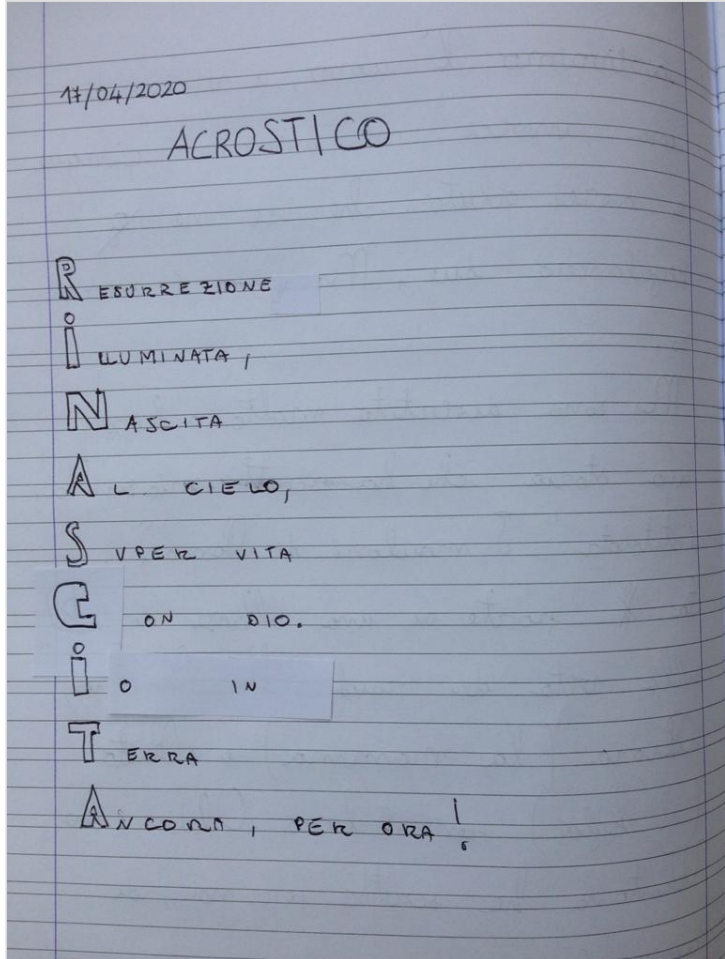 17/04/2020
ACROSTICO
RESURREZIONE
ILLUMINATA,
NASCITA
AL CIELO,
SUPER VITA
CON DIO.
IO IN
TERRA
ANCORA, PER ORA!